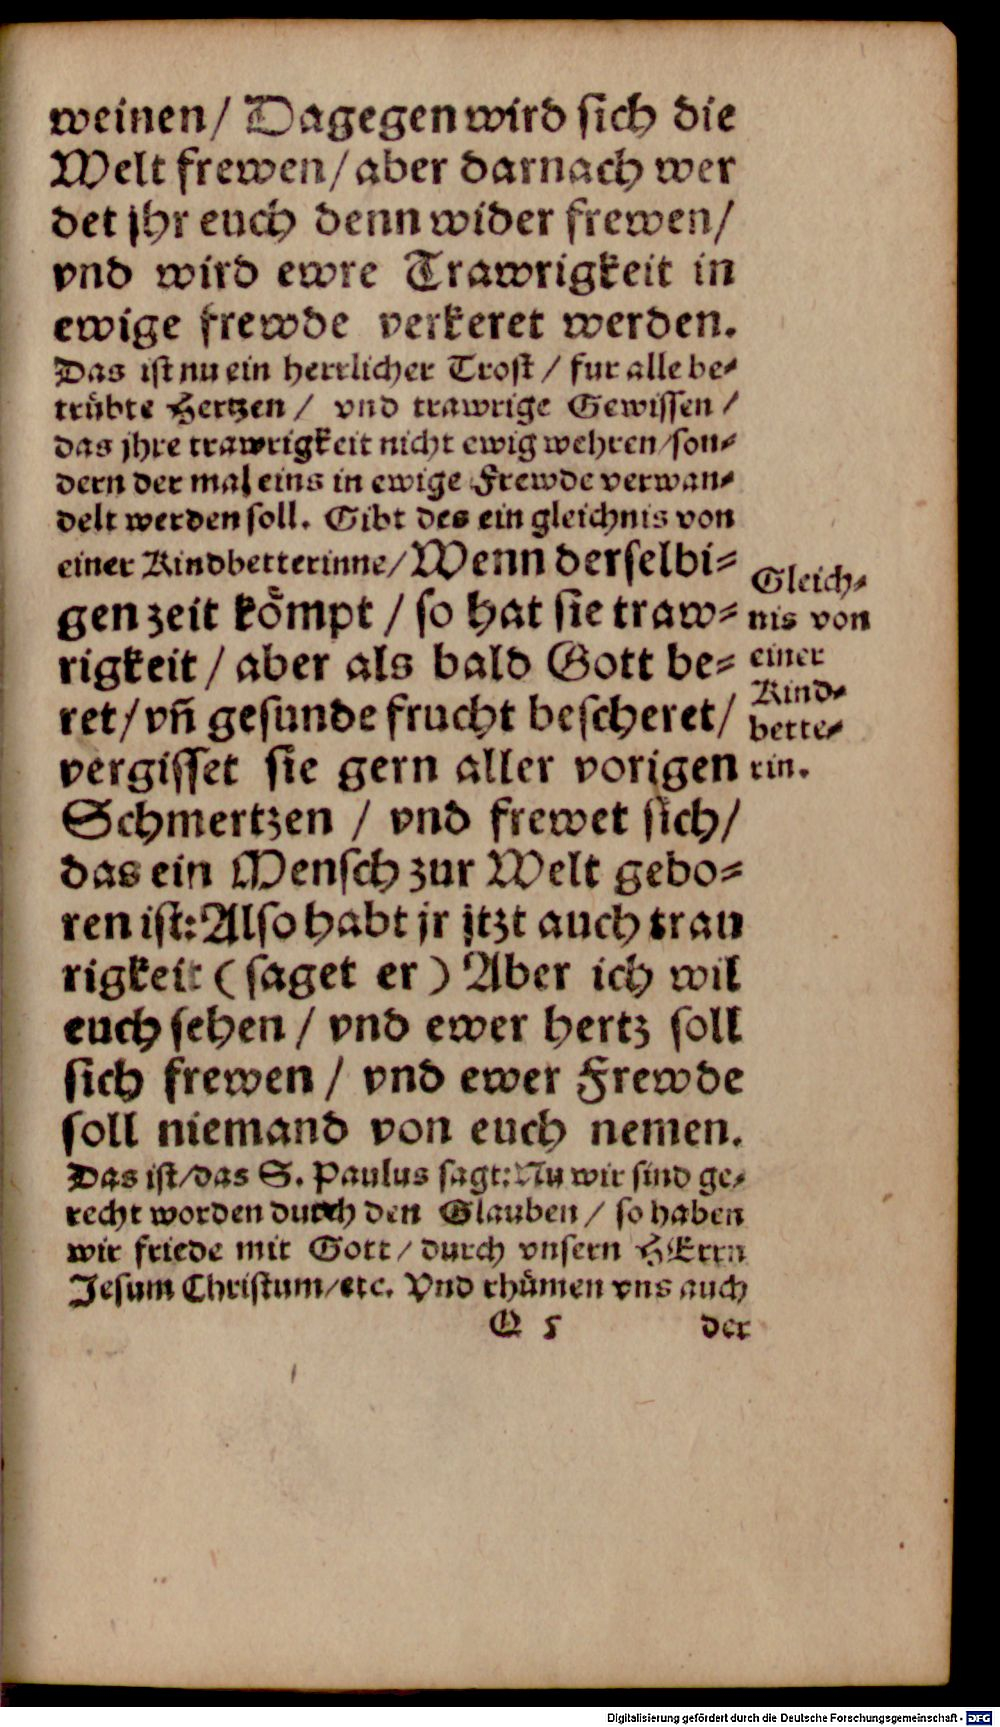 weinen/ Dagegen wird sich die
Welt frewen/ aber darnach wer
det jhr euch denn wider frewen/
vnd wird ewre Trawrigkeit in
ewige frewde verkeret werden.
Das ist nu ein herrlicher Trost / fur alle be-
trübte Hertzen / vnd trawrige Gewissen /
das jhre trawrigkeit nicht ewig wehren/son-
dern der mal eins in ewige Frewde verwan-
delt werden soll. Gibt des ein gleichnis von
einer Kindbetterinne/ Wenn derselbi-
gen zeit kömpt / so hat sie traw-
rigkeit / aber als bald Gott be-
ret/ vñ gesunde frucht bescheret/
vergisset sie gern aller vorigen
Schmertzen / vnd frewet sich/
das ein Mensch zur Welt gebo-
ren ist: Also habt jr jtzt auch trau
rigkeit ( saget er ) Aber ich wil
euch sehen / vnd ewer hertz soll
sich frewen / vnd ewer Frewde
soll niemand von euch nemen.
Das ist/das S. Paulus sagt: Nu wir sind ge-
recht worden durch den Glauben / so haben
wir friede mit Gott / durch vnsern HErrn
Jesum Christum/etc. Vnd rhümen vns auch
Q 5 der
Gleich-
nis von
einer
Kind-
bette-
rin.
Digitalisierung gefördert durch die Deutsche Forschungsgemeinschaft - DFG